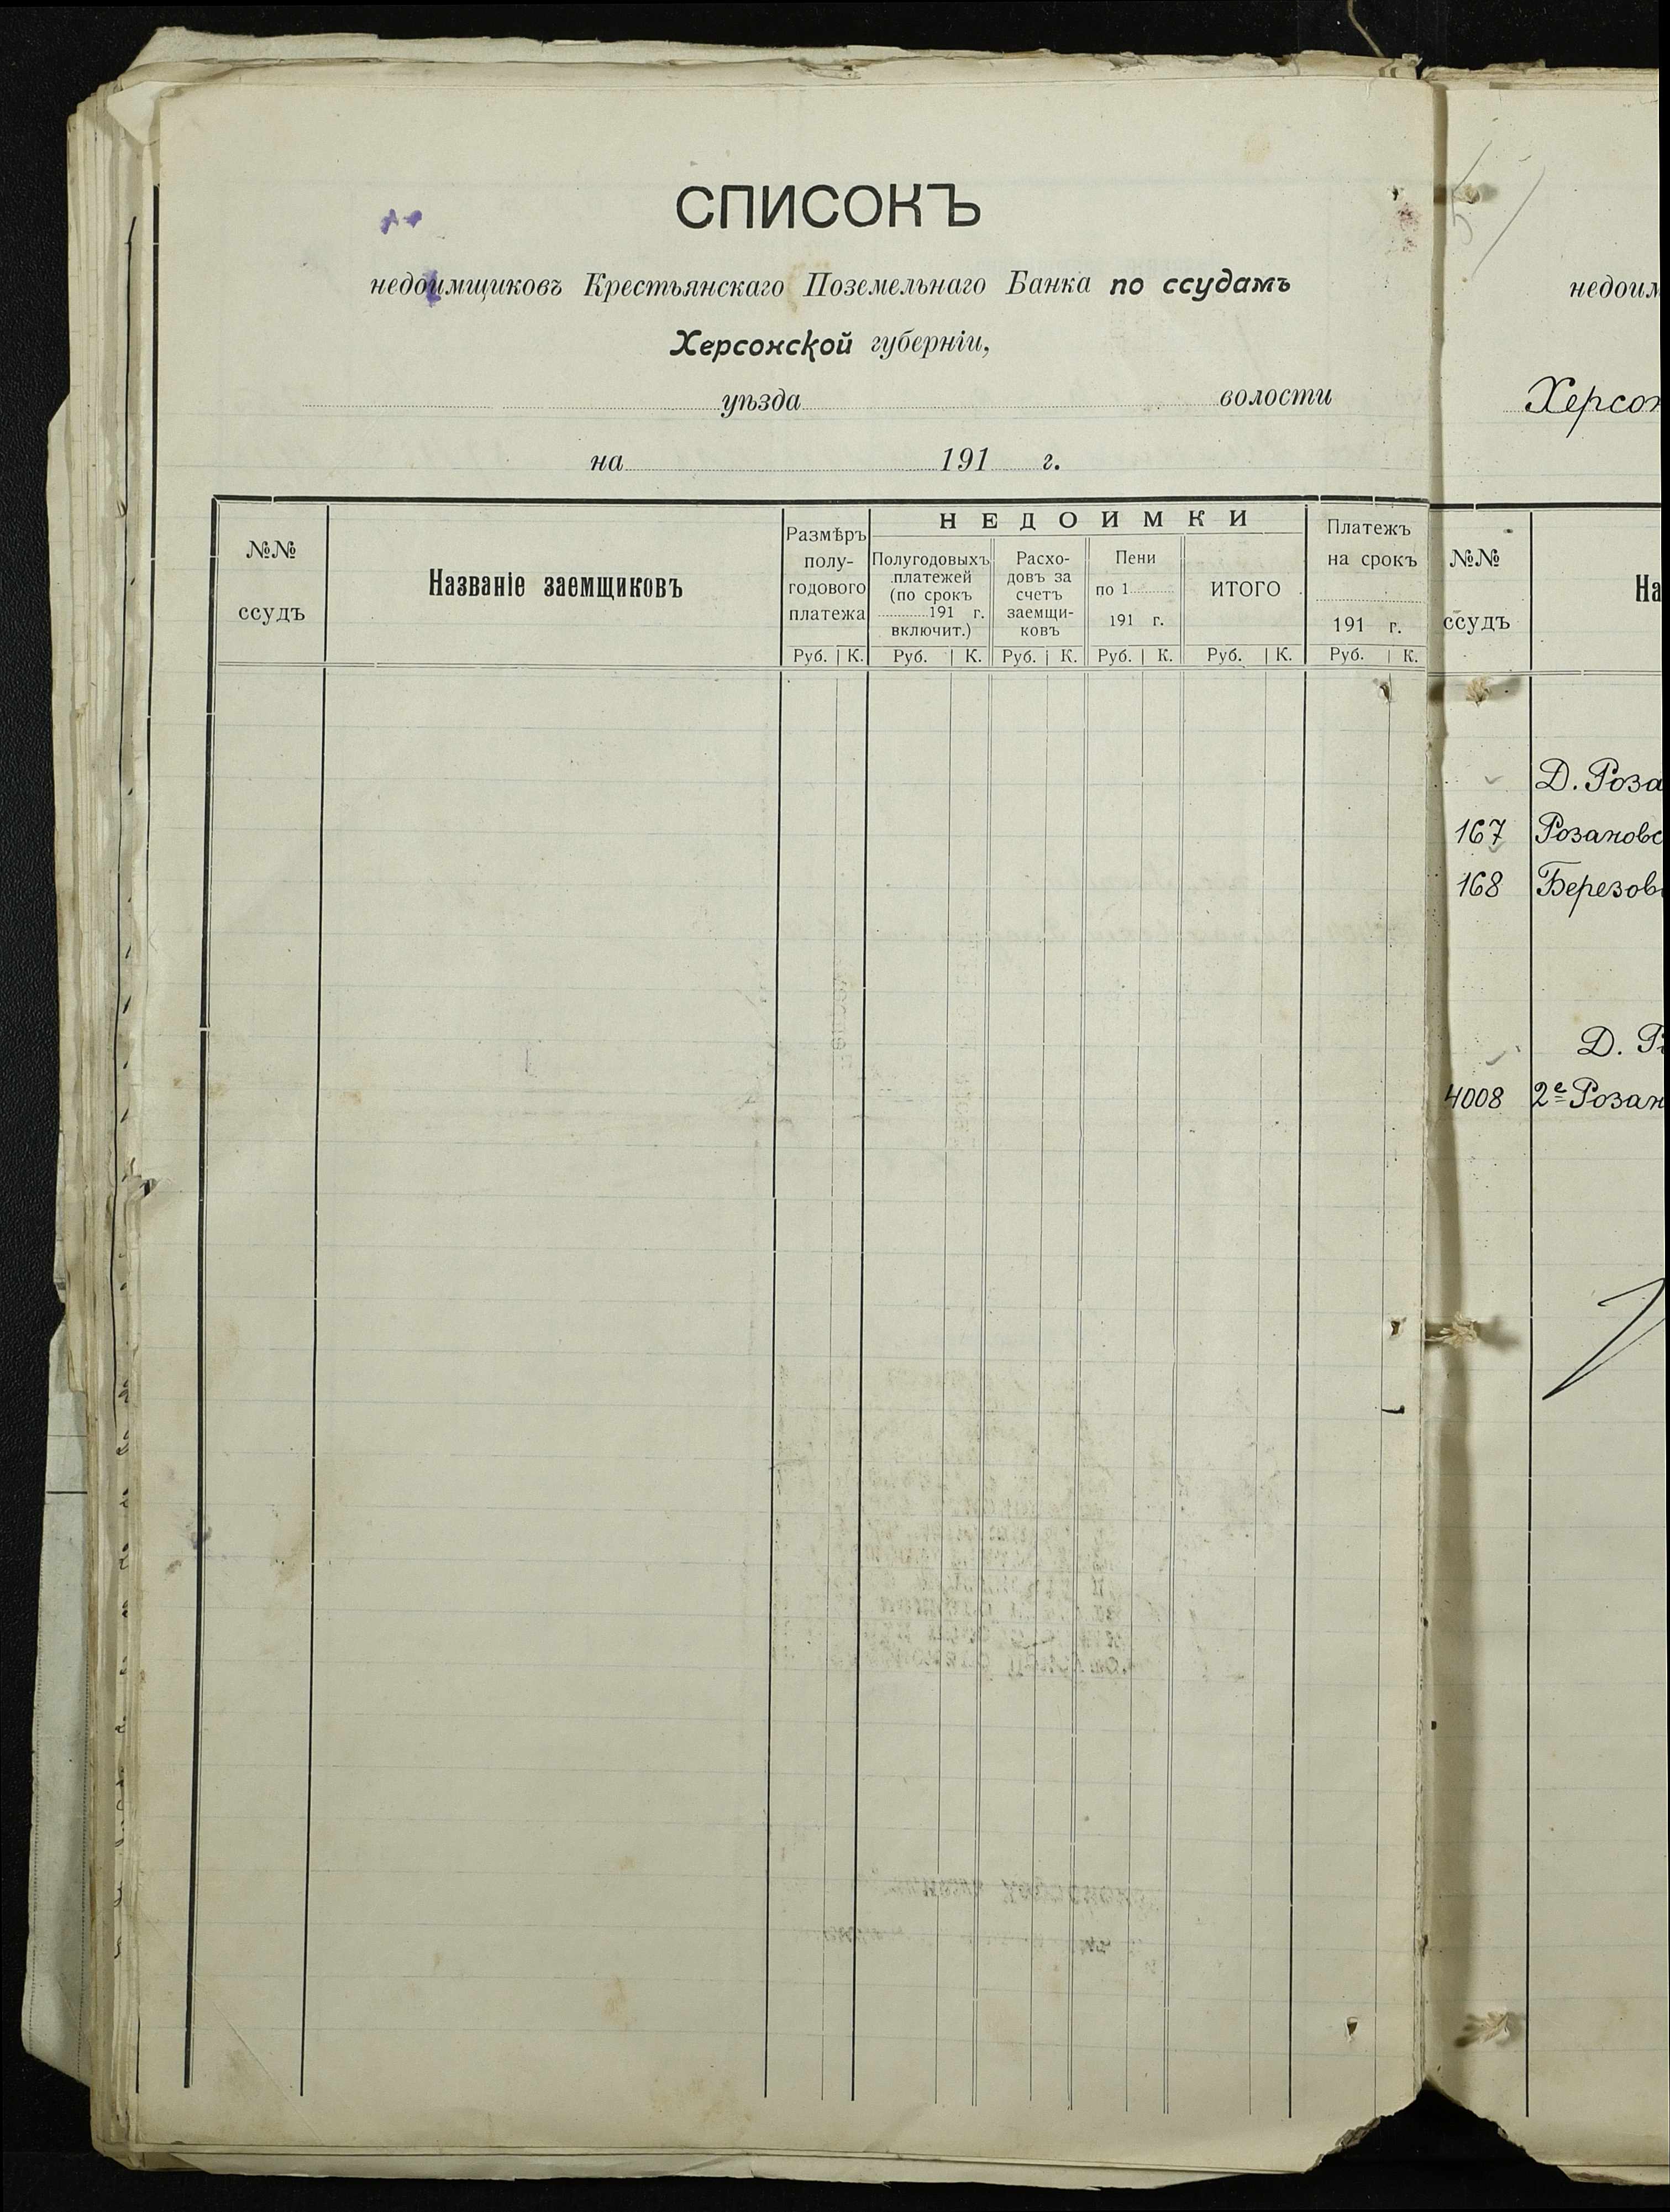 СПИСОКЪ
недоимщиковъ Крестьянскаго Поземельнаго Банка по ссудамъ
Херсонской губерніи,
уѣзда волости
на 191 г.
№№
ссудъ
Названіе заемщиковъ
Размѣръ
полу-
годового
платежа
НЕДОИМКИ
Полугодовыхъ
платежей
(по срокъ
191 г.
включит.)
Расхо-
довъ за
счетъ
заемщи-
ковъ
Пени
по 1
191 г.
ИТОГО
Платежъ
на срокъ
191 г.
Руб. К. Руб. К. Руб. К. Руб. К. Руб. К. Руб. К.
недоим
Херсон
№№
ссудъ
На
Д. Роза
167 Розановс
168 Березов
Д.
4008 2е Розан